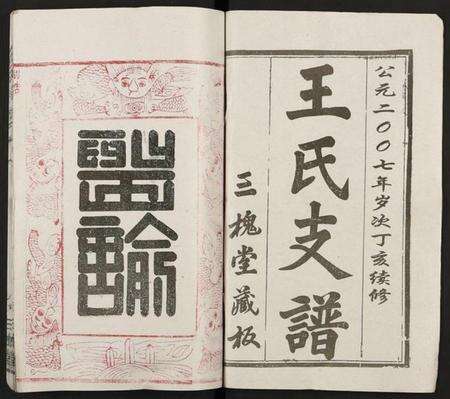 公元二〇〇七年岁次丁亥续修
王氏支譜
三槐堂藏板
聖諭